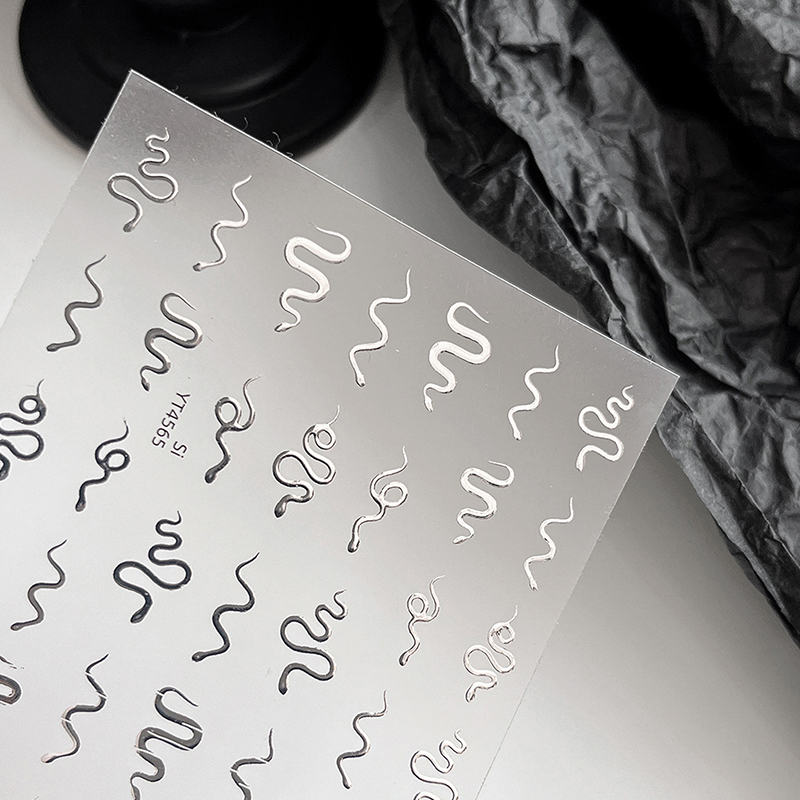 Si
YT4565